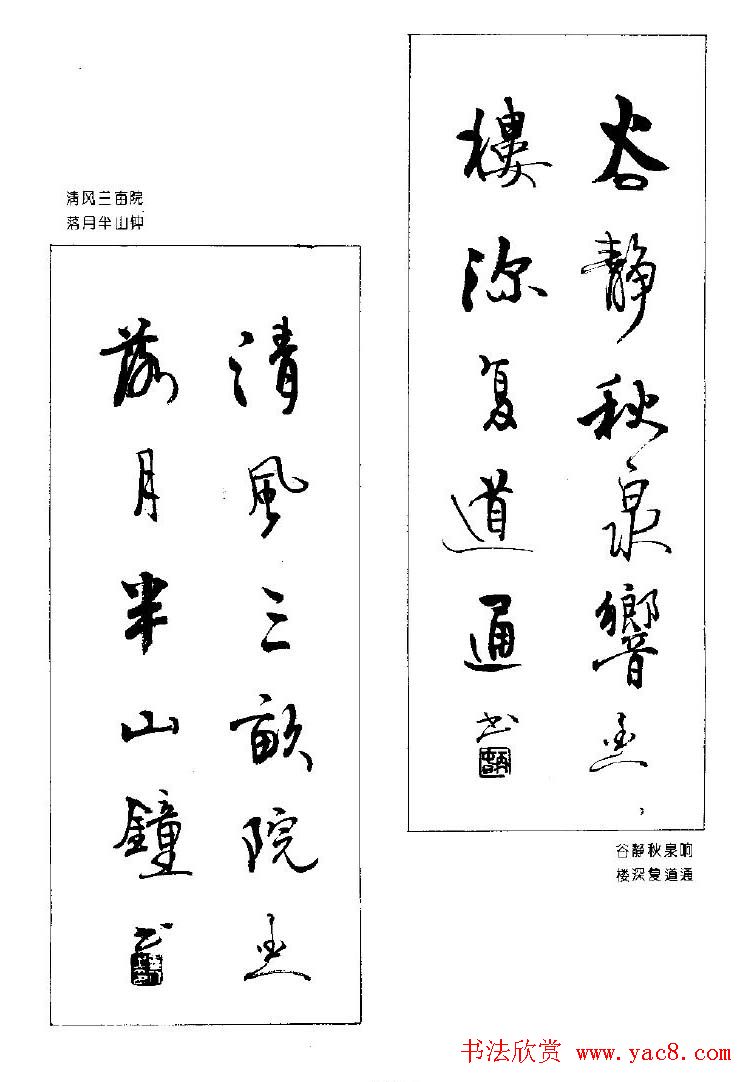 谷静秋泉響
樓深复道通 书
谷静秋泉响
楼深复道通
清风兰亩院
落月半山钟
清風三畝院
落月半山鐘 书
书法欣赏 www.yac8.com